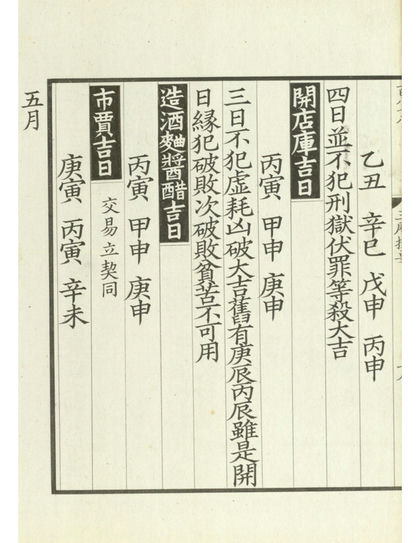 乙丑 辛巳 戊申 丙申
四日並不犯刑獄伏罪等殺大吉
開店庫吉日
丙寅 甲申 庚申
三日不犯虛耗凶破大吉舊有庚辰丙辰雖是開
日緣犯破敗次破敗貧苦不可用
造酒麯醬醋吉日
丙寅 甲申 庚申
市賈吉日
交易立契同
庚寅 丙寅 辛未
五月